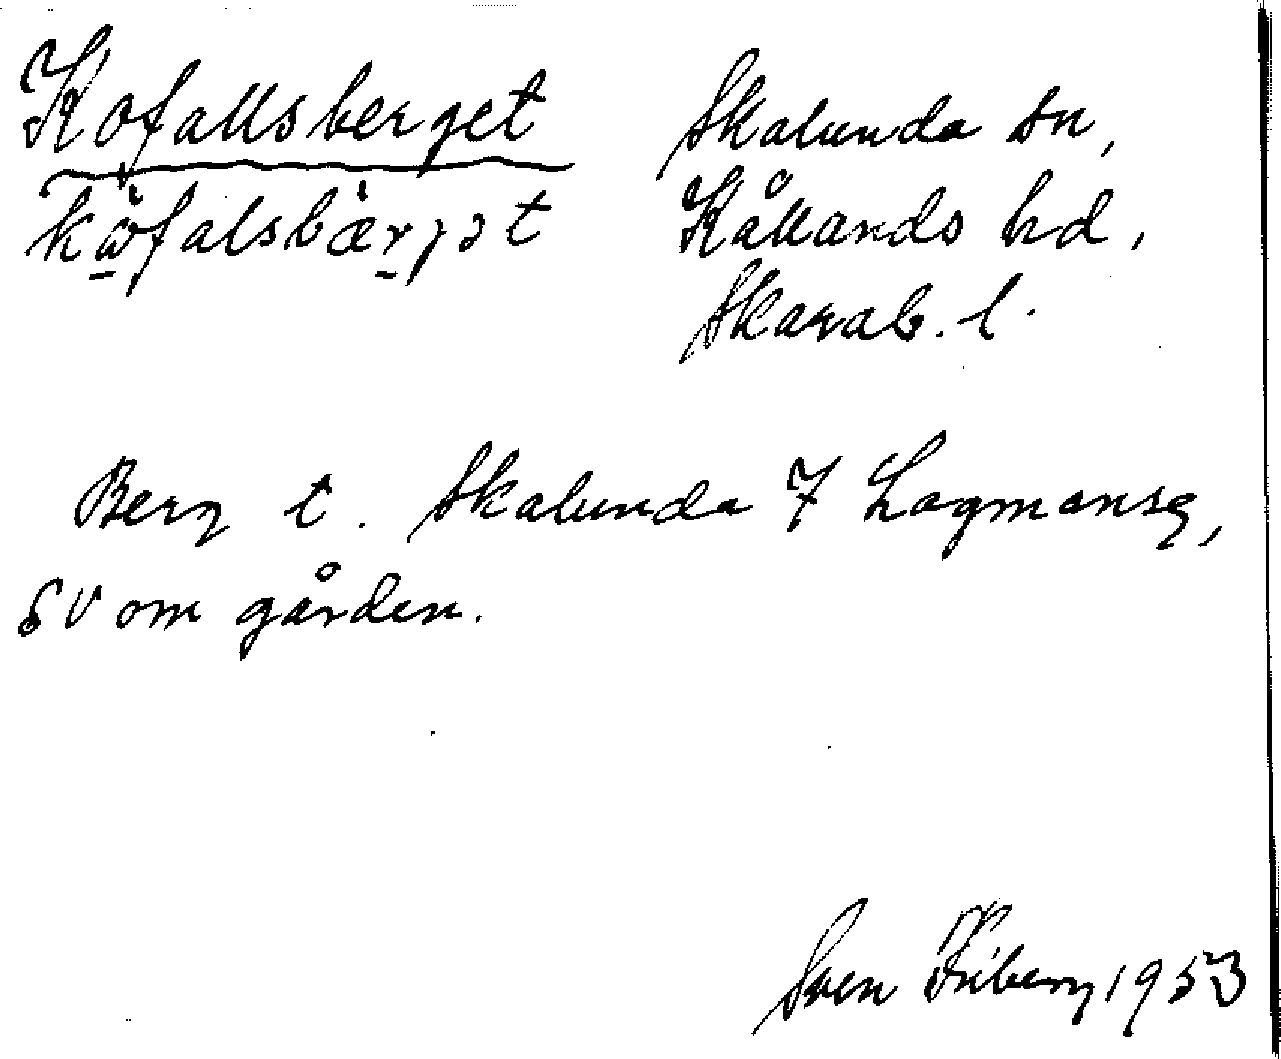 Kofallsberget
kὼfalsbæ̀rjət
Skalunda sn,
Kållands hd,
Skarab. l.
Berg t. Skalunda 7 Lagmansg,
SV om gården.
Sven Friberg 1953